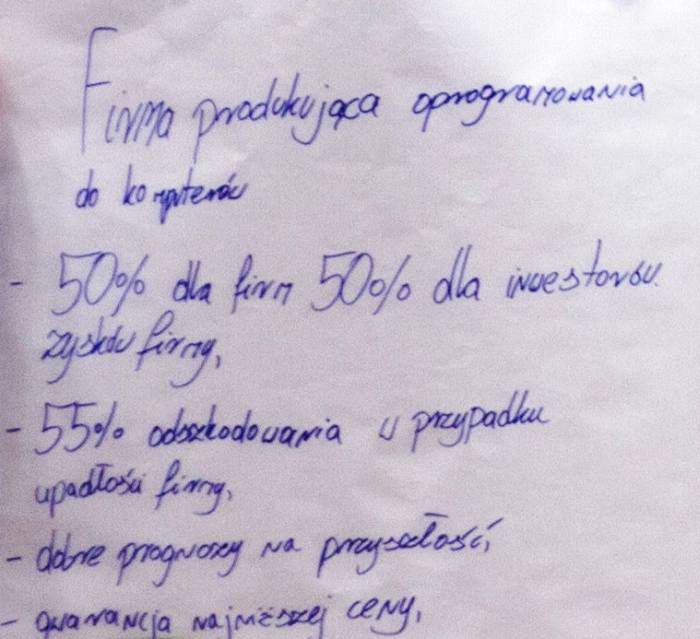 Firma produkująca oprogramowania
do komputerów
- 50% dla firm 50% dla inwestorów
zysków firmy,
- 55% odszkodowania w przypadku
upadłości firmy,
- dobre prognozy na przyszłość,
- gwarancja najniższej ceny,